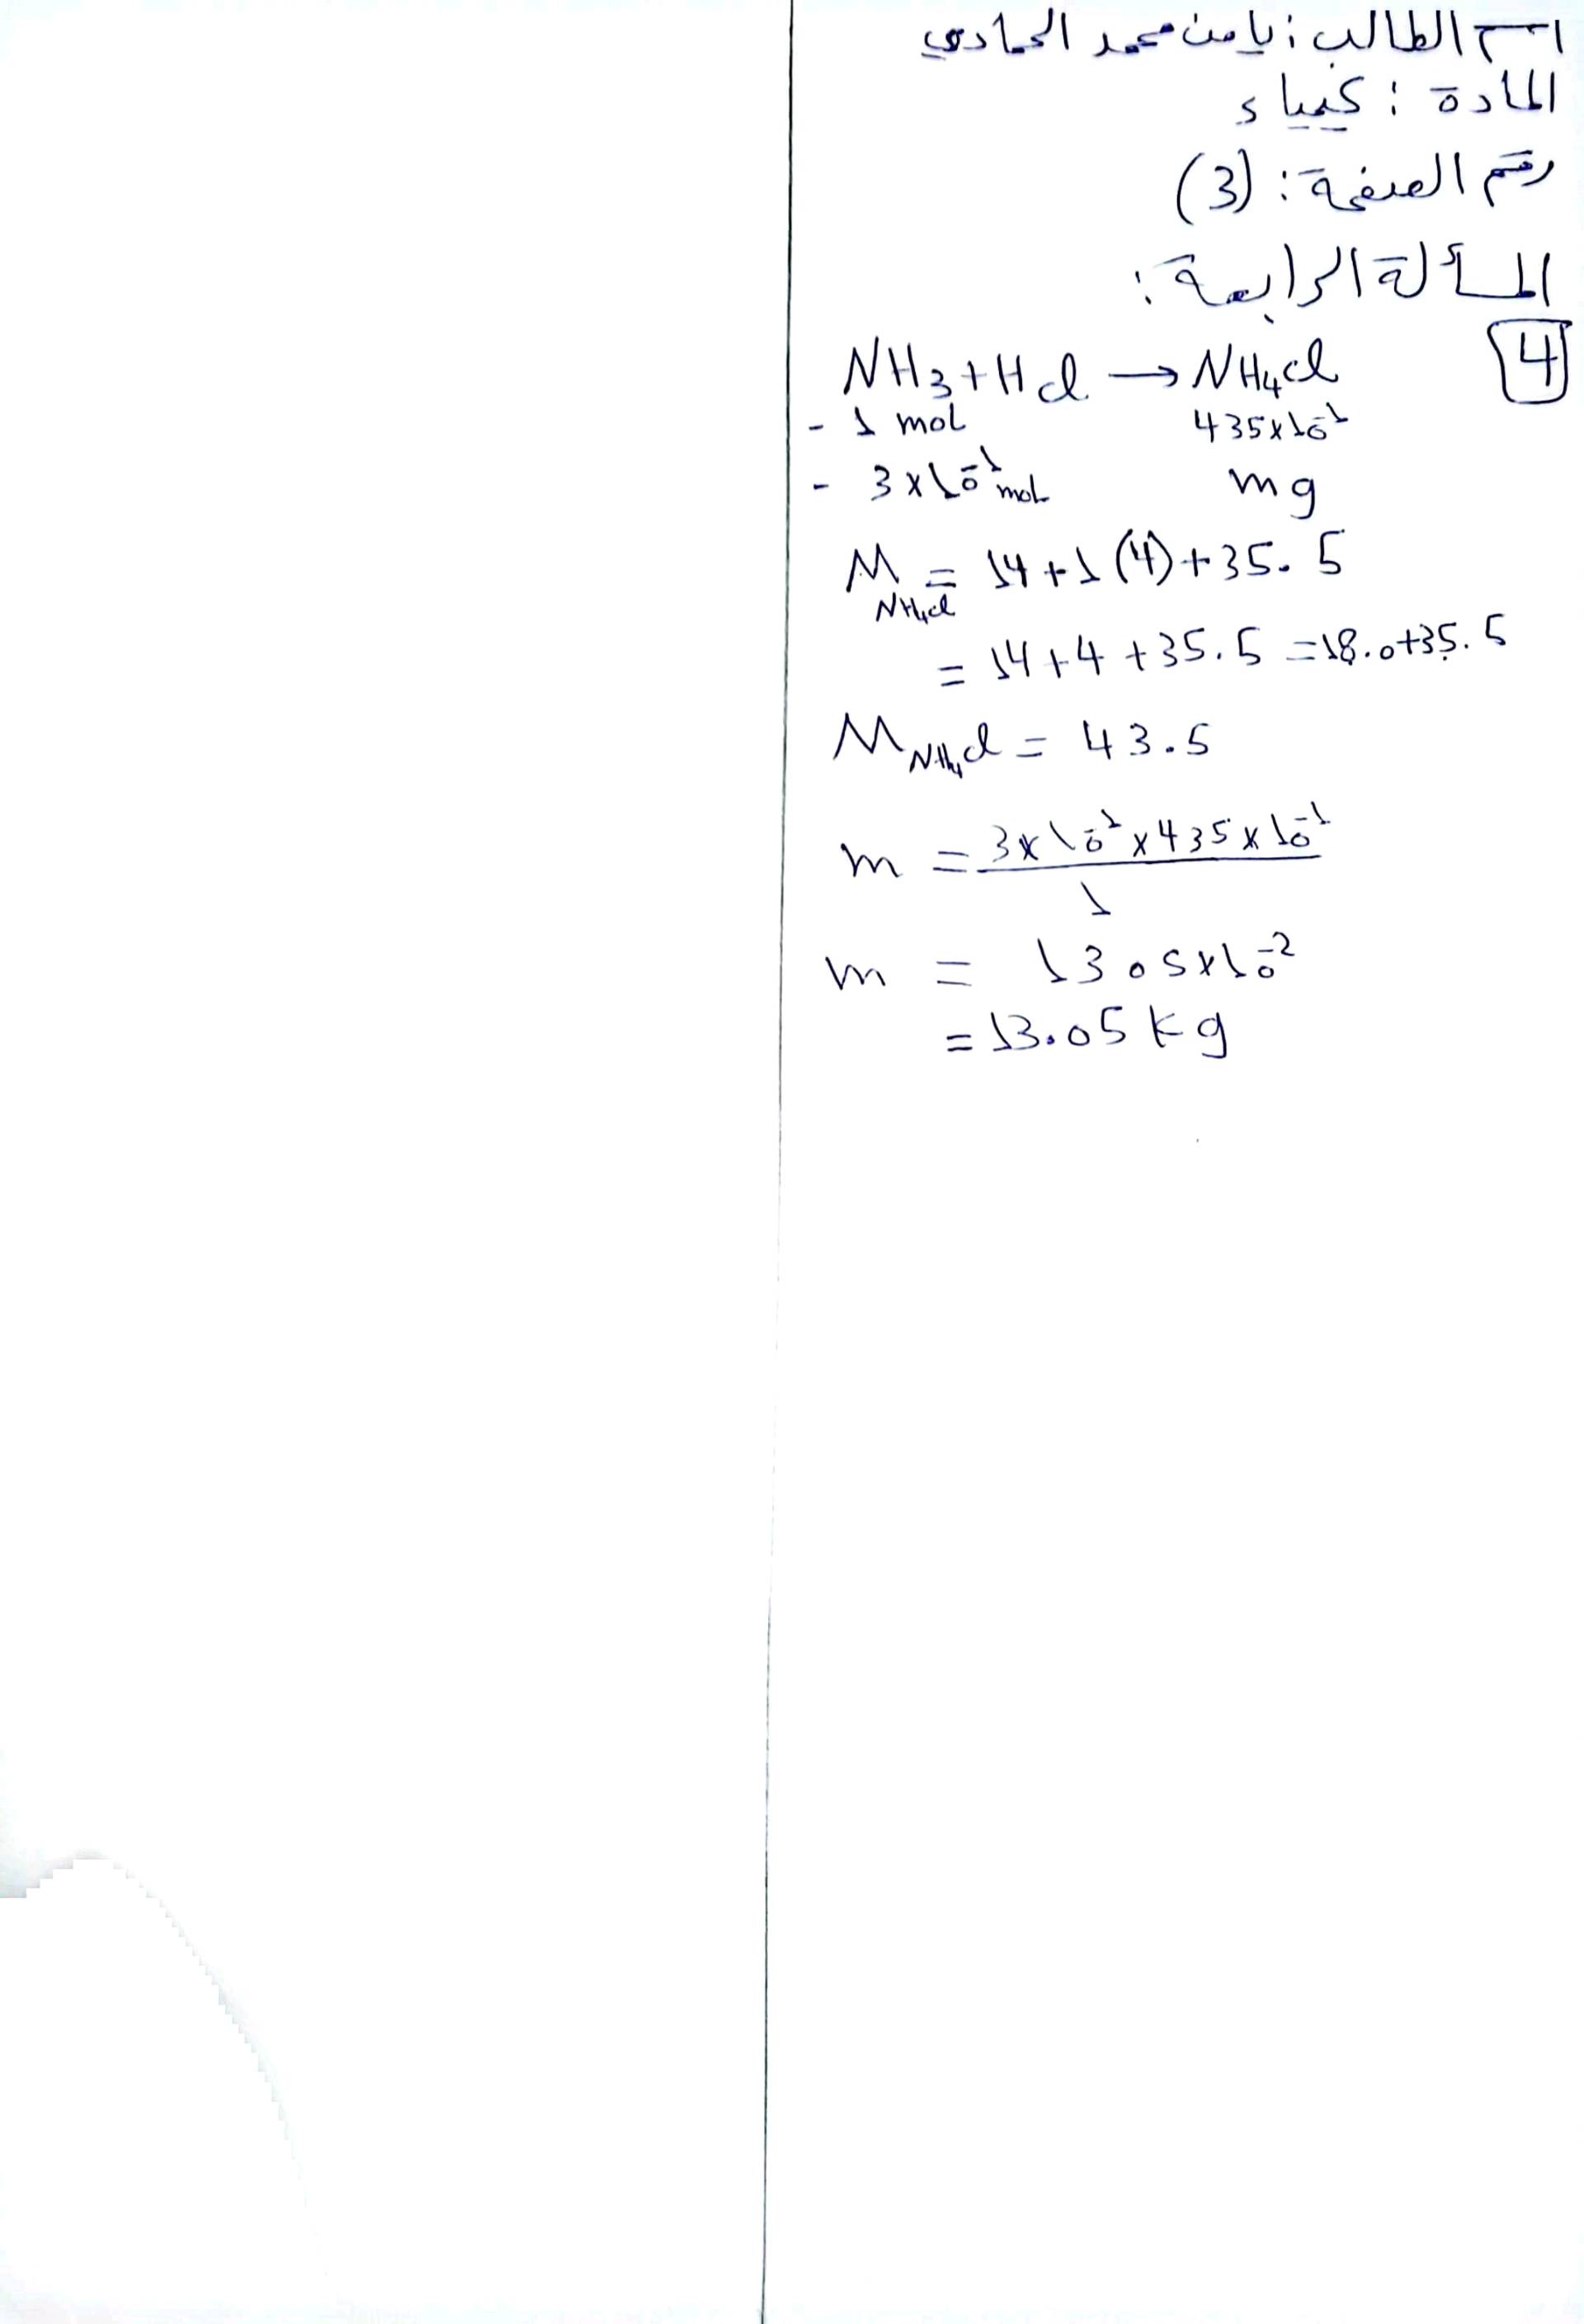 اسم الطالب: يامن محمد الحمادي
المادة: كيمياء
رقم الصفحة: (3)
المسألة الرابعة:
4
NH3 + HCl → NH4Cl
- 1 mol 435×10⁻¹
- 3×10⁻¹ mol m g
M NH4Cl = 14+1(4)+35.5
= 14+4+35.5 =18.0+35.5
M NH4Cl = 43.5
m = 3×10⁻¹×435×10⁻¹
1
m = 1305×10⁻²
= 13.05 kg